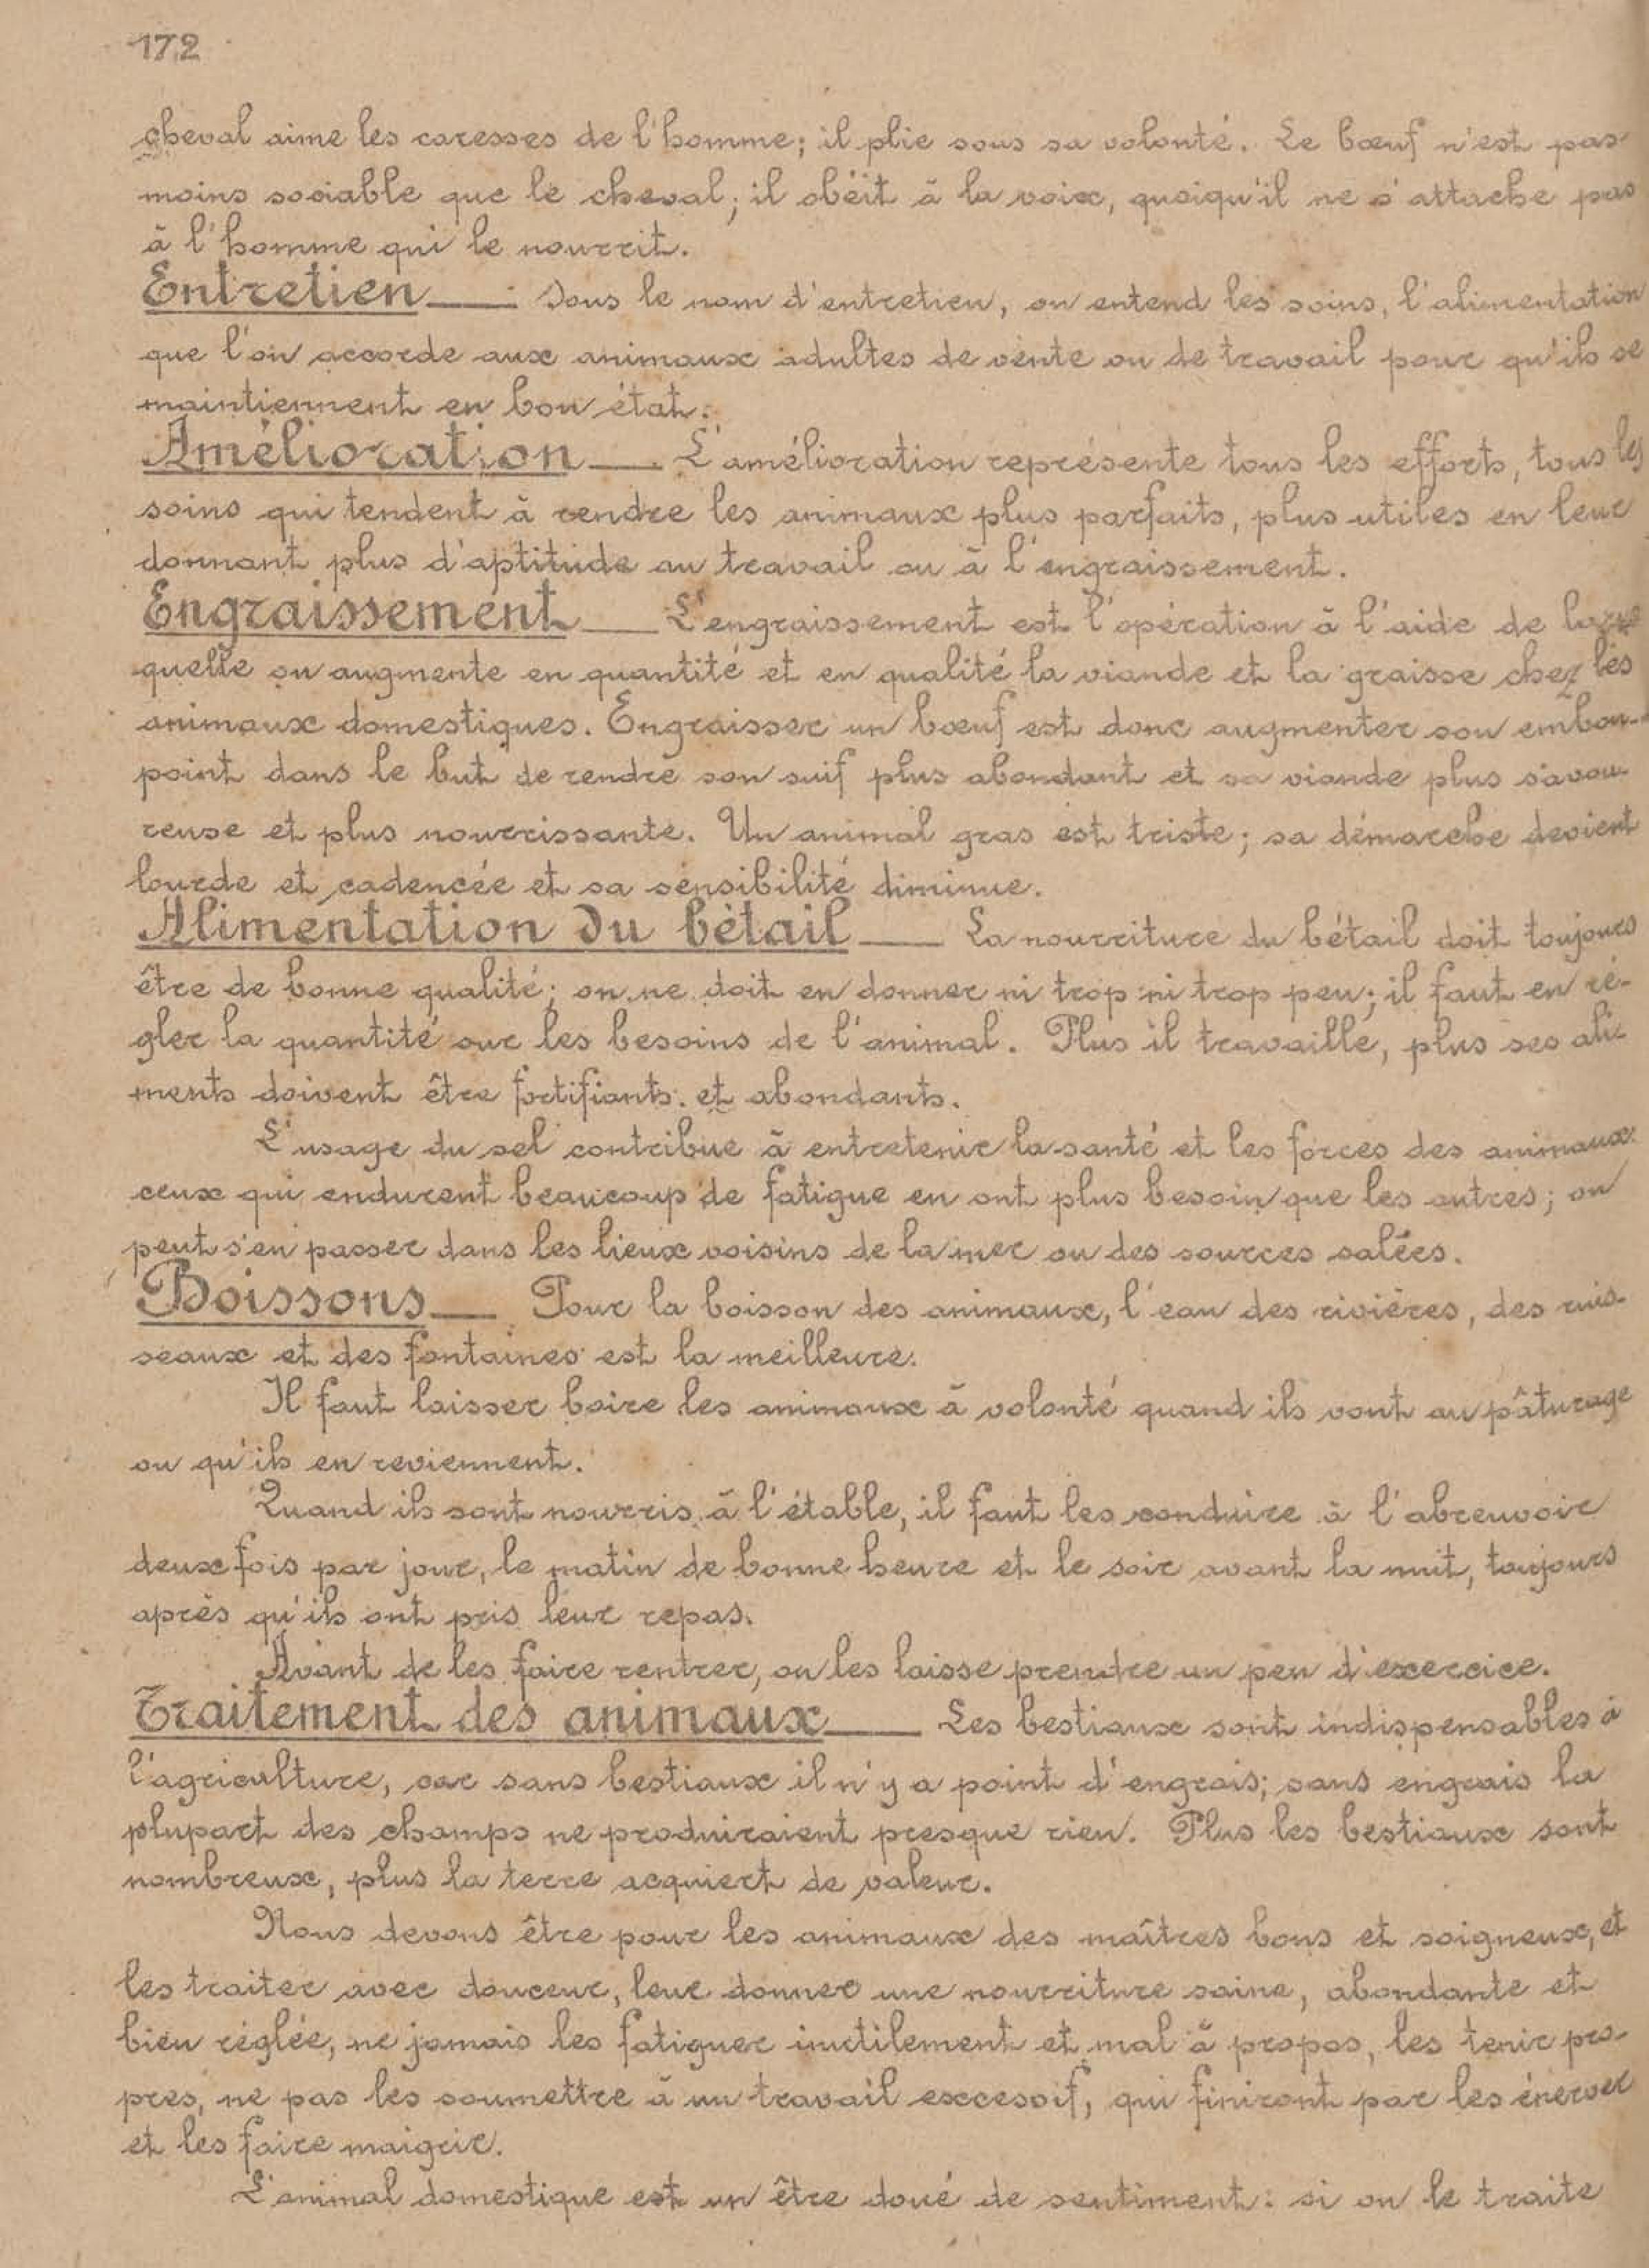 172
cheval aime les caresses de l'homme; il plie sous sa volonté. Le bœuf n'est pas
moins sociable que le cheval; il obéit à la voix, quoiqu'il ne s'attache pas
à l'homme qui le nourrit.
Entretien — Sous le nom d'entretien, on entend les soins, l'alimentation
que l'on accorde aux animaux adultes de vente ou de travail pour qu'ils se
maintiennent en bon état.
Amélioration — L'amélioration représente tous les efforts, tous les
soins qui tendent à rendre les animaux plus parfaits, plus utiles en leur
donnant plus d'aptitude au travail ou à l'engraissement.
Engraissement — L'engraissement est l'opération à l'aide de la
quelle on augmente en quantité et en qualité la viande et la graisse chez les
animaux domestiques. Engraisser un bœuf est donc augmenter son embon-
point dans le but de rendre son suif plus abondant et sa viande plus savou-
reuse et plus nourrissante. Un animal gras est triste; sa démarche devient
lourde et cadencée et sa sensibilité diminue.
Alimentation du bétail — La nourriture du bétail doit toujours
être de bonne qualité; on ne doit en donner ni trop ni trop peu; il faut en ré-
gler la quantité sur les besoins de l'animal. Plus il travaille, plus ses ali-
ments doivent être fortifiants et abondants.
L'usage du sel contribue à entretenir la santé et les forces des animaux:
ceux qui endurent beaucoup de fatigue en ont plus besoin que les autres; on
peut s'en passer dans les lieux voisins de la mer ou des sources salées.
Boissons — Pour la boisson des animaux, l'eau des rivières, des ruis-
seaux et des fontaines est la meilleure.
Il faut laisser boire les animaux à volonté quand ils vont au pâturage
ou qu'ils en reviennent.
Quand ils sont nourris à l'étable, il faut les conduire à l'abreuvoir
deux fois par jour, le matin de bonne heure et le soir avant la nuit, toujours
après qu'ils ont pris leur repas.
Avant de les faire rentrer, on les laisse prendre un peu d'exercice.
Traitement des animaux — Les bestiaux sont indispensables à
l'agriculture, car sans bestiaux il n'y a point d'engrais; sans engrais la
plupart des champs ne produiraient presque rien. Plus les bestiaux sont
nombreux, plus la terre acquiert de valeur.
Nous devons être pour les animaux des maîtres bons et soigneux, et
les traiter avec douceur, leur donner une nourriture saine, abondante et
bien réglée, ne jamais les fatiguer inutilement et mal à propos, les tenir pro-
pres, ne pas les soumettre à un travail excessif, qui finiront par les énerver
et les faire maigrir.
L'animal domestique est un être doué de sentiment: si on le traite